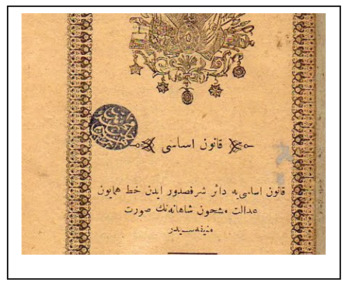 قانون اساسی
قانون اساسی یه دائر شرفصدور ایدن خط همایون
عدالت مشحون شاهانه نك صورت
منیفه سیدر